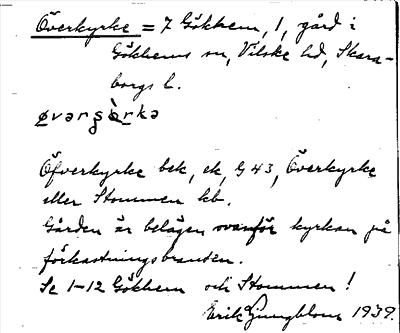 Överkyrke = 7 Gökhem, 1, gård i
Gökhems sn, Vilske hd, Skara-
borgs l.
øvarʂòrkə
Öfverkyrke bek, ek, G 43, Överkyrke
eller Stommen kb.
Gården är belägen ovanför kyrkan på
förkastningsbranden.
Se 1-12 Gökhem och Stommen!
Erik Ljungblom 1939.